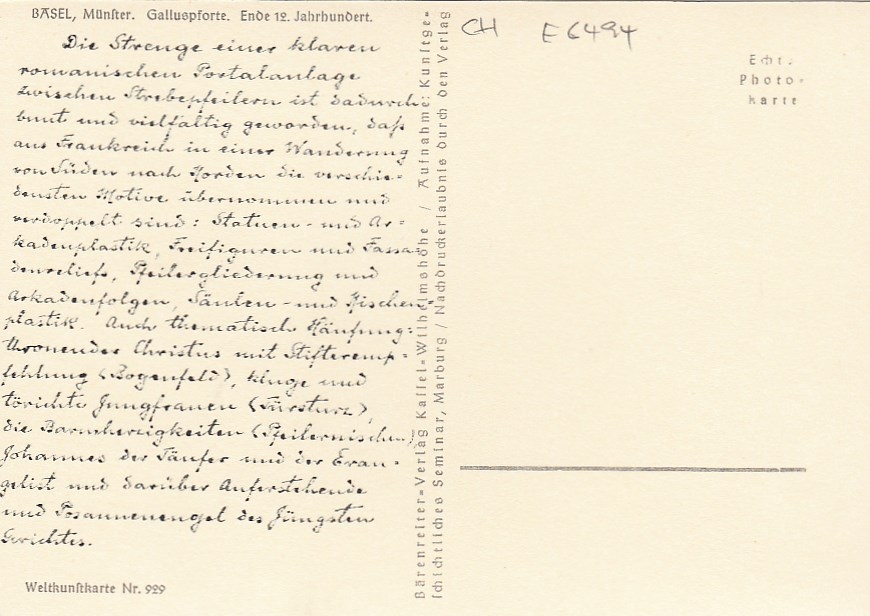 BASEL, Münster. Galluspforte. Ende 12. Jahrhundert.
Die Strenge einer klaren
romanischen Portalanlage
zwischen Strebepfeilern ist dadurch
bunt und vielfältig geworden, daß
aus Frankreich in einer Wanderung
von Süden nach Norden die verschie-
densten Motive übernommen und
verdoppelt sind: Statuen- und Ar-
kadenplastik, Freifiguren und Fassa-
denreliefs, Pfeilergliederung und
Arkadenfolgen, Säulen- und Nischen-
plastik. Auch thematisch Häufung:
thronender Christus mit Stifteremp-
fehlung (Bogenfeld), kluge und
törichte Jungfrauen (Türsturz),
die Barmherzigkeiten (Pfeilernischen),
Johannes der Täufer und der Evan-
gelist und darüber Auferstehende
und Posaunenengel des Jüngsten
Gerichtes.
Weltkunstkarte Nr. 929
Bärenreiter-Verlag Kassel-Wilhelmshöhe / Aufnahme: Kunstge-
schichtliches Seminar, Marburg / Nachdruckerlaubnis durch den Verlag
CH E6494
Echt.
Photo-
karte